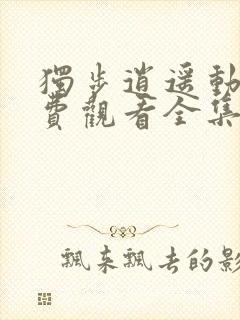 獨步逍遥動
費觀看全集
飄來飄去的影